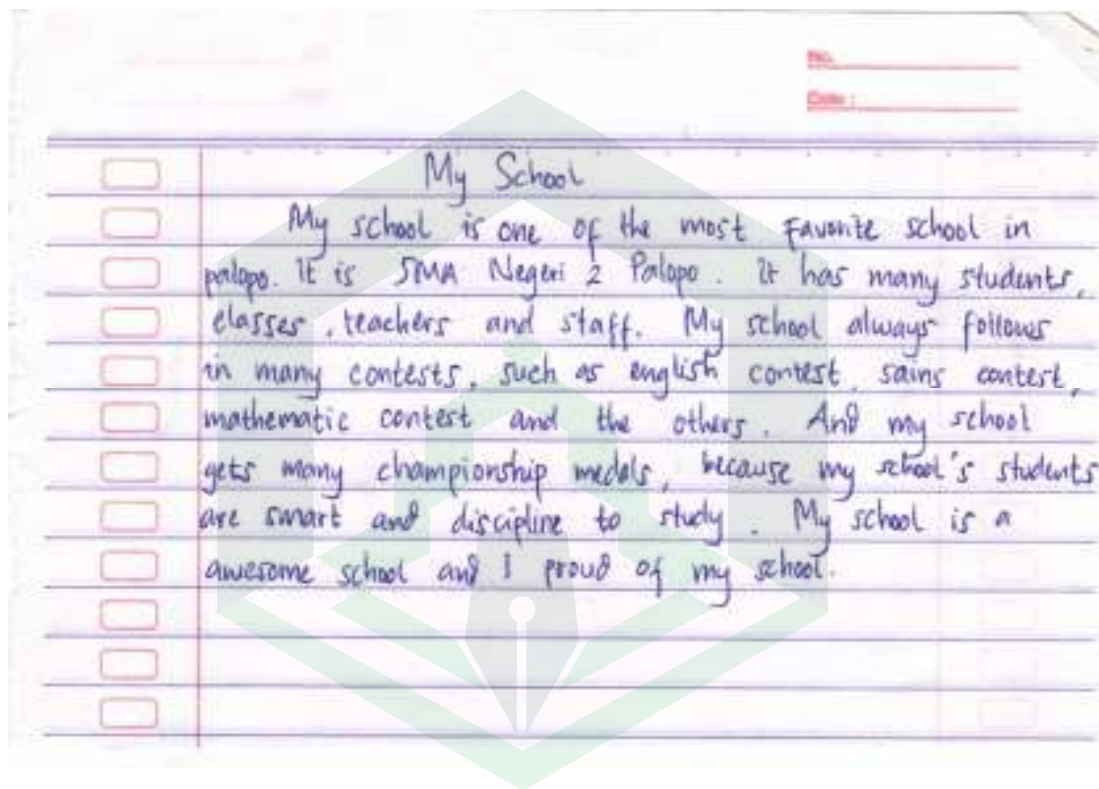 No.
Date :
My School
My school is one of the most Favorite school in
palopo. It is SMA Negeri 2 Palopo. It has many students,
classes, teachers and staff. My school always follows
in many contests, such as english contest, sains contest,
mathematic contest and the others. And my school
gets many championship medals, because my school's students
are smart and discipline to study. My school is a
awesome school and I proud of my school.